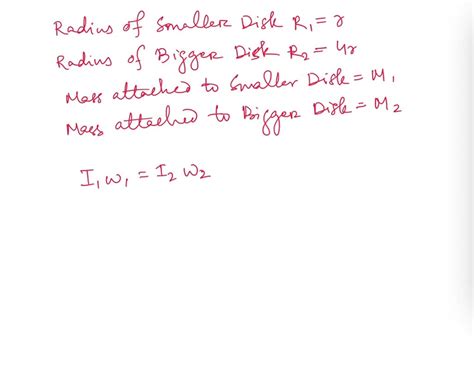 Radius of Smaller Disk R₁ = r
Radius of Bigger Disk R₂ = 4r
Mass attached to Smaller Disk = M₁
Mass attached to Bigger Disk = M₂
I₁ω₁ = I₂ω₂